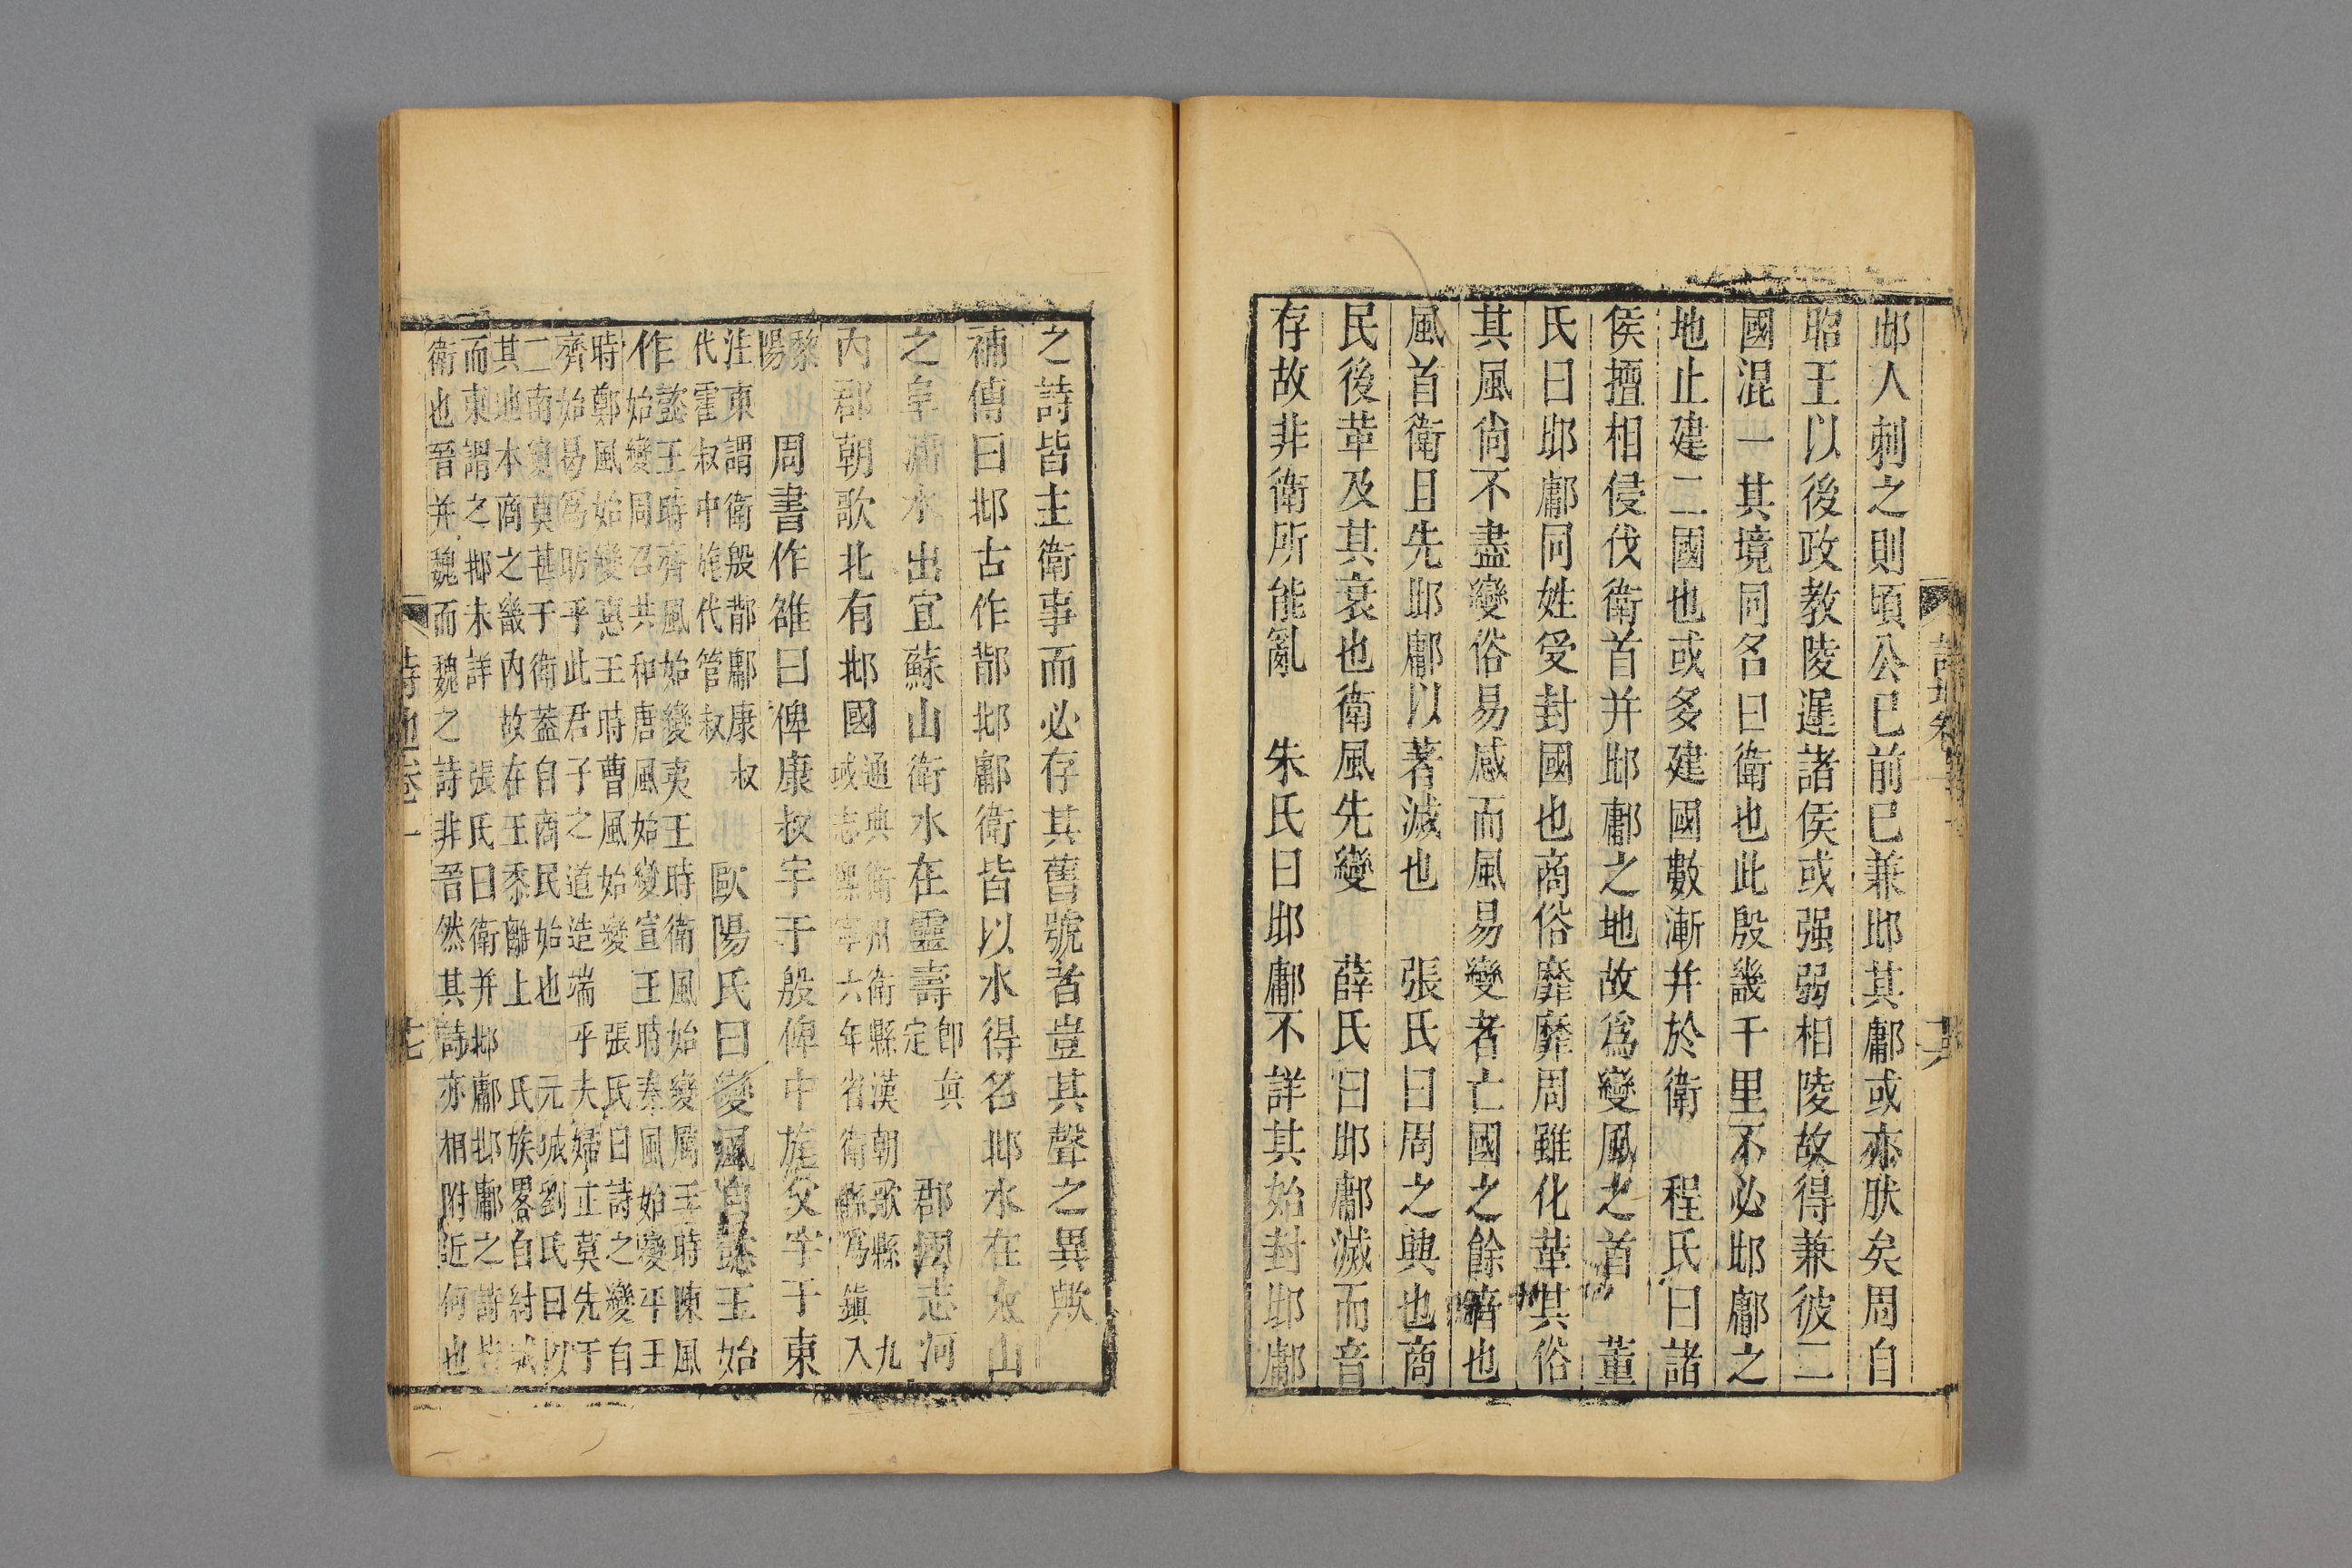 邶人刺之則頃公已前已兼邶其鄘或亦然矣周自
昭王以後政教陵遲諸侯或强弱相陵故得兼彼二
國混一其境同名曰衛也此殷畿千里不必邶鄘之
地止建二國也或多建國數漸并於衛　程氏曰諸
侯擅相侵伐衛首并邶鄘之地故爲變風之首　董
氏曰邶鄘同姓受封國也商俗靡靡周雖化革其俗
其風尚不盡變俗易感而風易變者亡國之餘 也
風首衛且先邶鄘以著滅也　張氏曰周之興也商
民後革及其衰也衛風先變　薛氏曰邶鄘滅而音
存故非衛所能亂　朱氏曰邶鄘不詳其始封邶鄘
之詩皆主衛事而必存其舊號者豈其聲之異歟
補傳曰邶古作鄁邶鄘衛皆以水得名邶水在 山
之阜 水出宜蘇山衛水在靈壽
即真
定
郡國志河
內郡朝歌北有邶國
通典衛州衛縣漢朝歌縣　九
域志熙寧六年省衛縣爲鎮入
黎
陽
周書作雒曰俾康叔宇于殷俾中旄父宇于東
注東謂衛殷鄁鄘康叔
代霍叔中旄代管叔
歐陽氏曰變風自懿王始
作
懿王時齊風始變夷王時衛風始變厲王時陳風
始變周召共和唐風始變宣王時秦風始變平王
時鄭風始變惠王時曹風始變　張氏曰詩之變自
齊始易爲昉乎此君子之道造端乎夫婦正莫先于
二南變莫甚于衛蓋自商民始也　元城劉氏曰以
其地本商之畿內故在王黍離上　氏族畧自紂城
而東謂之邶未詳　張氏曰衛并邶鄘邶鄘之詩皆
衛也晉并魏而魏之詩非晉然其詩亦相附近何也
詩地卷一
十七